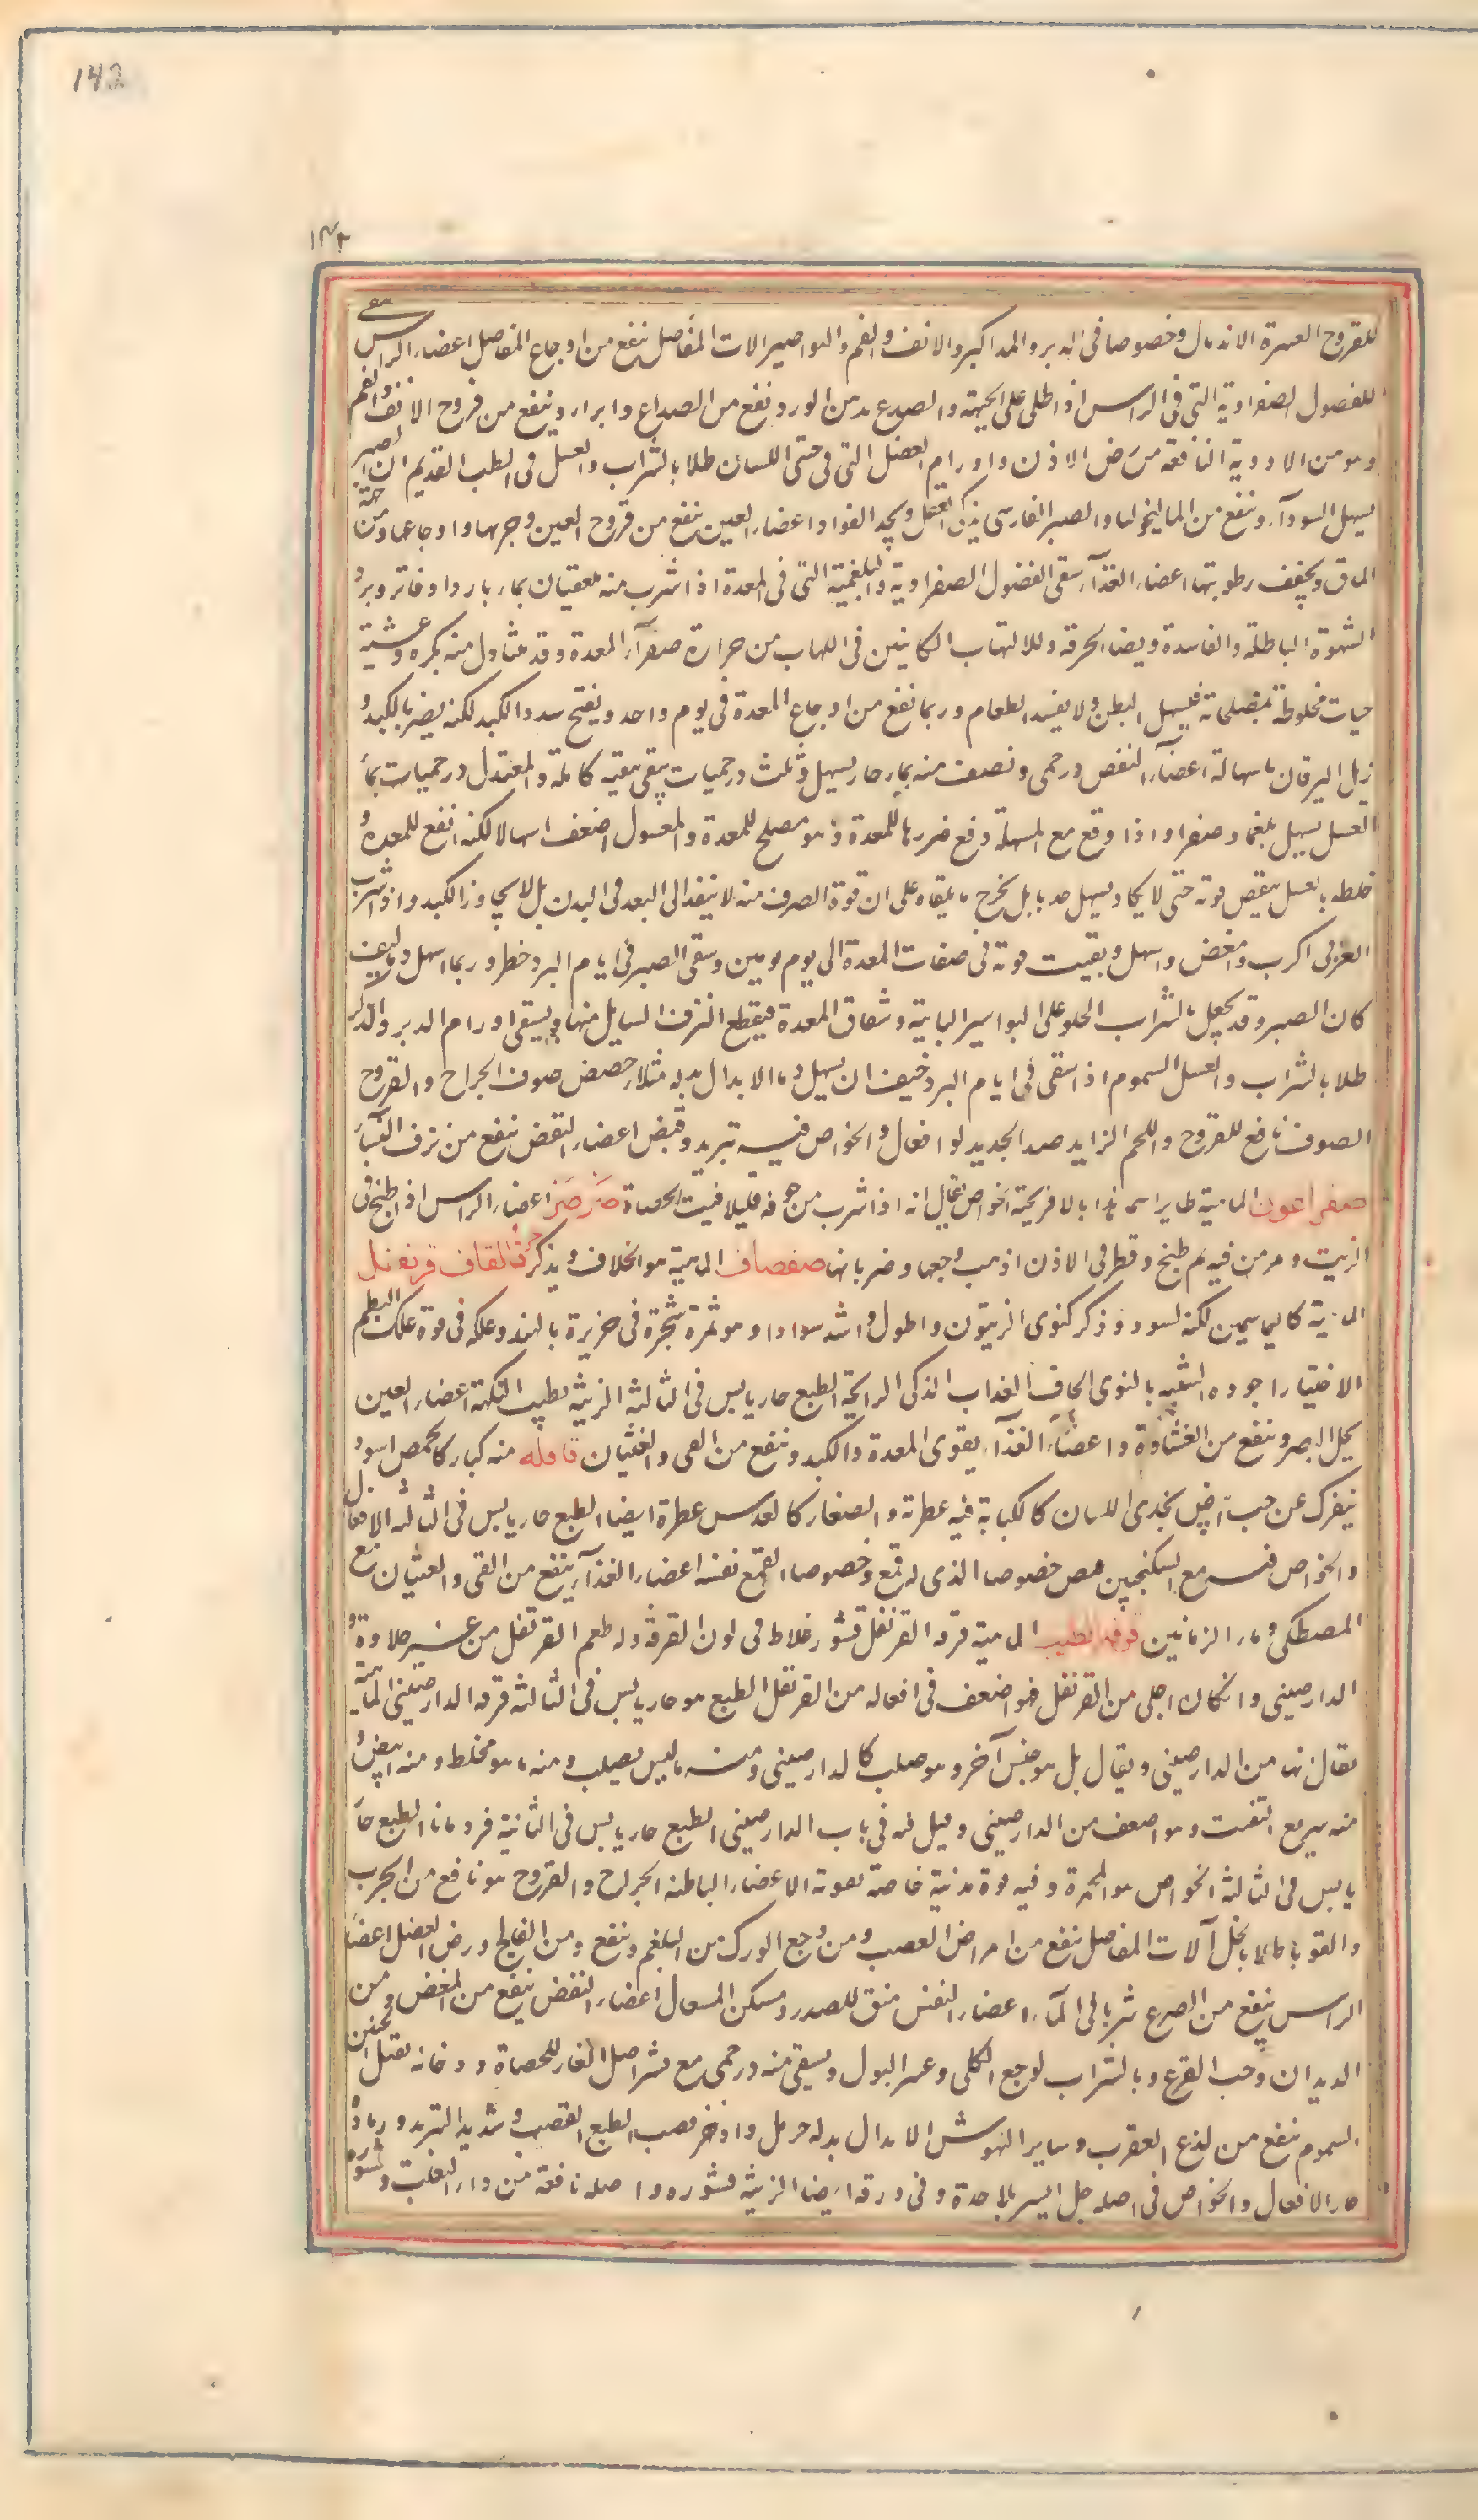 142
١٤٢
للقروح العسرة الاندمال وخصوصا فى الدبر والمذاكير والانف والفم والبواصير الات المفاصل ينفع من اوجاع المفاصل اعضاء الراس ينقى
للفصول الصفراوية التى فى الراس اذا طلى على الجبهة والصدع بدهن الورد نفع من الصداع وابراء وينفع من قروح الانف والفم
وهو من الادوية النافعة من رض الاذن واورام العضل التى فى حتى اللسان طلا بالشراب والعسل فى الطب القديم ان الصبر
يسهل السودآء وينفع من الماليخوليا والصبر الفارسى يذكى العقل ويحد الفواد اعضاء العين ينفع من قروح العين وجربها واوجاعها ومن حكة
الماق ويجفف رطوبتها اعضاء الغذآء ينقى الفضول الصفراوية والبلغمية التى فى المعدة اذا شرب منه ملعقتان بماء بارد او فاتر ويرد
الشهوة الباطلة والفاسدة ويصلح الحرقة وللالتهاب الكاينين فى اللهاب من حرارة صفرآء المعدة وقد يتناول منه بكرة وعشية
حبات مخلوطة بمصلحاته فيسهل البطن ولا يفسد الطعام وربما نفع من اوجاع المعدة فى يوم واحد ويفتح سدد الكبد لكنه يضر بالكبد و
يزيل اليرقان باسهاله اعضآء النفض درخمى ونصف منه بماء حار يسهل وثلث درخميات ينقى تنقية كاملة والمعتدل درخميات بماء
العسل يسهل بلغما وصفرا واذا وقع مع المسهلة دفع ضررها للمعدة وهو مصلح للمعدة والمغسول اضعف اسهالا لكنه انفع للمعدة و
خلطه بالعسل ينقص قوته حتى لا يكاد يسهل جذبا بل يخرج ما يلقاه على ان قوة الصرف منه لا ينفذ الى البعد فى البدن بل لا يجاوز الكبد واذا شرب
العربى اكرب وامغض واسهل وبقيت قوته فى صفات المعدة الى يوم يومين وسقى الصبر فى ايام البرد خطر وربما اسهل دما كيف
كان الصبر وقد يجعل بالشراب الحلو على البواسير الناتية وشقاق المعدة فيقطع النزف السايل منها ويشفى اورام الدبر والذكر
طلا بالشراب والعسل السموم اذا سقى فى ايام البرد خيف ان يسهل دما الابدال بدله مثلاه حضض صوف الجراح والقروح
الصوف نافع للقروح واللحم الزايد صدا الحديد افعال والخواص فيه تبريد وقبض اعضاء النفض ينفع من نزف النسآء
صفراعون الماهية طاير اسمه هذا بالافرنجية الخواص يقال انه اذا شرب من جوفه قليلا فتت الحصاة صرصر اعضاء الراس اذا طبخ فى
الزيت ومرهن فيه ثم طبخ وقطر فى الاذن اذهب وجعها وضربانها صفصاف الماهية هو الخلاف ويذكر حرف القاف قرنفل
الماهية كالياسمين لكنه اسود وذكره كنوى الزيتون واطول واشد سوادا وهو ثمرة شجرة فى جزيرة بالهند وعلكه فى قوة علك البطم
الاختيار اجوده الشبيه بالنوى الجاف العذاب الذكى الرايحة الطبع حار يابس فى الثالثة الزينة يطيب النكهة اعضاء العين
يحل البصر وينفع من الغشاوة واعضآء الغذآء يقوى المعدة والكبد وينفع من القى والغثيان قاقله منه كبار كالحمص اسود
ينفرك عن حب ابيض يحذى اللسان كالكبابة فيه عطرية والصغار كالعدس عطرة ايضا الطبع حار يابس فى الثالثة الافعال
والخواص فيه مع السكنجبين قبض خصوصا الذى له قمع وخصوصا القمع نفسه اعضاء الغذآء ينفع من القى والغثيان مع
المصطكى وماء الرمانين قرفة الطيب الماهية قرفه القرنفل قشور غلاظ فى لون القرفة وله طعم القرنفل من غير حلاوة و
الدارصينى وان كان اجلى من القرنفل فهو اضعف فى افعاله من القرنفل الطبع هو حار يابس فى الثالثة قرفة الدارصينى الماهية
يقال انها من الدارصينى ويقال بل هو جنس آخر وهو صلب كالدارصينى ومنه ما ليس بصلب ومنه ما هو مخلط ومنه ابيض و
منه سريع التفتت وهو اضعف من الدارصينى وميل له فى باب الدارصينى الطبع حار يابس فى الثانية قردمانا الطبع حار
يابس فى الثالثة الخواص هو المحمرة وفيه قوة مدنية خاصة بعونة الاعضاء الباطنة الجراح والقروح هو نافع من الجرب
والقوبا طلا بالخل آلات المفاصل ينفع من امراض العصب ومن وجع الورك من البلغم وينفع ومن الفالج ورض العضل اعضآء
الراس ينفع من الصرع شربا فى المآء اعضاء النفس منق للصدر ومسكن السعال اعضاء النفض ينفع من المغض ومن
الديدان وحب القرع وبالشراب لوجع الكلى وعسر البول ويسقى منه درخمى مع قشر اصل الغار للحصاة ودخانه يقتل الجنين
السموم ينفع من لذع العقرب وساير النهوش الابدال بدله حرمل واذخر قصب الطبع القصب شديد التبريد ورماده
حار الافعال والخواص فى اصله جلا يسير بلا حدة وفى ورقه ايضا الزينة قشوره واصله نافعة من دآء الثعلب وقشوره